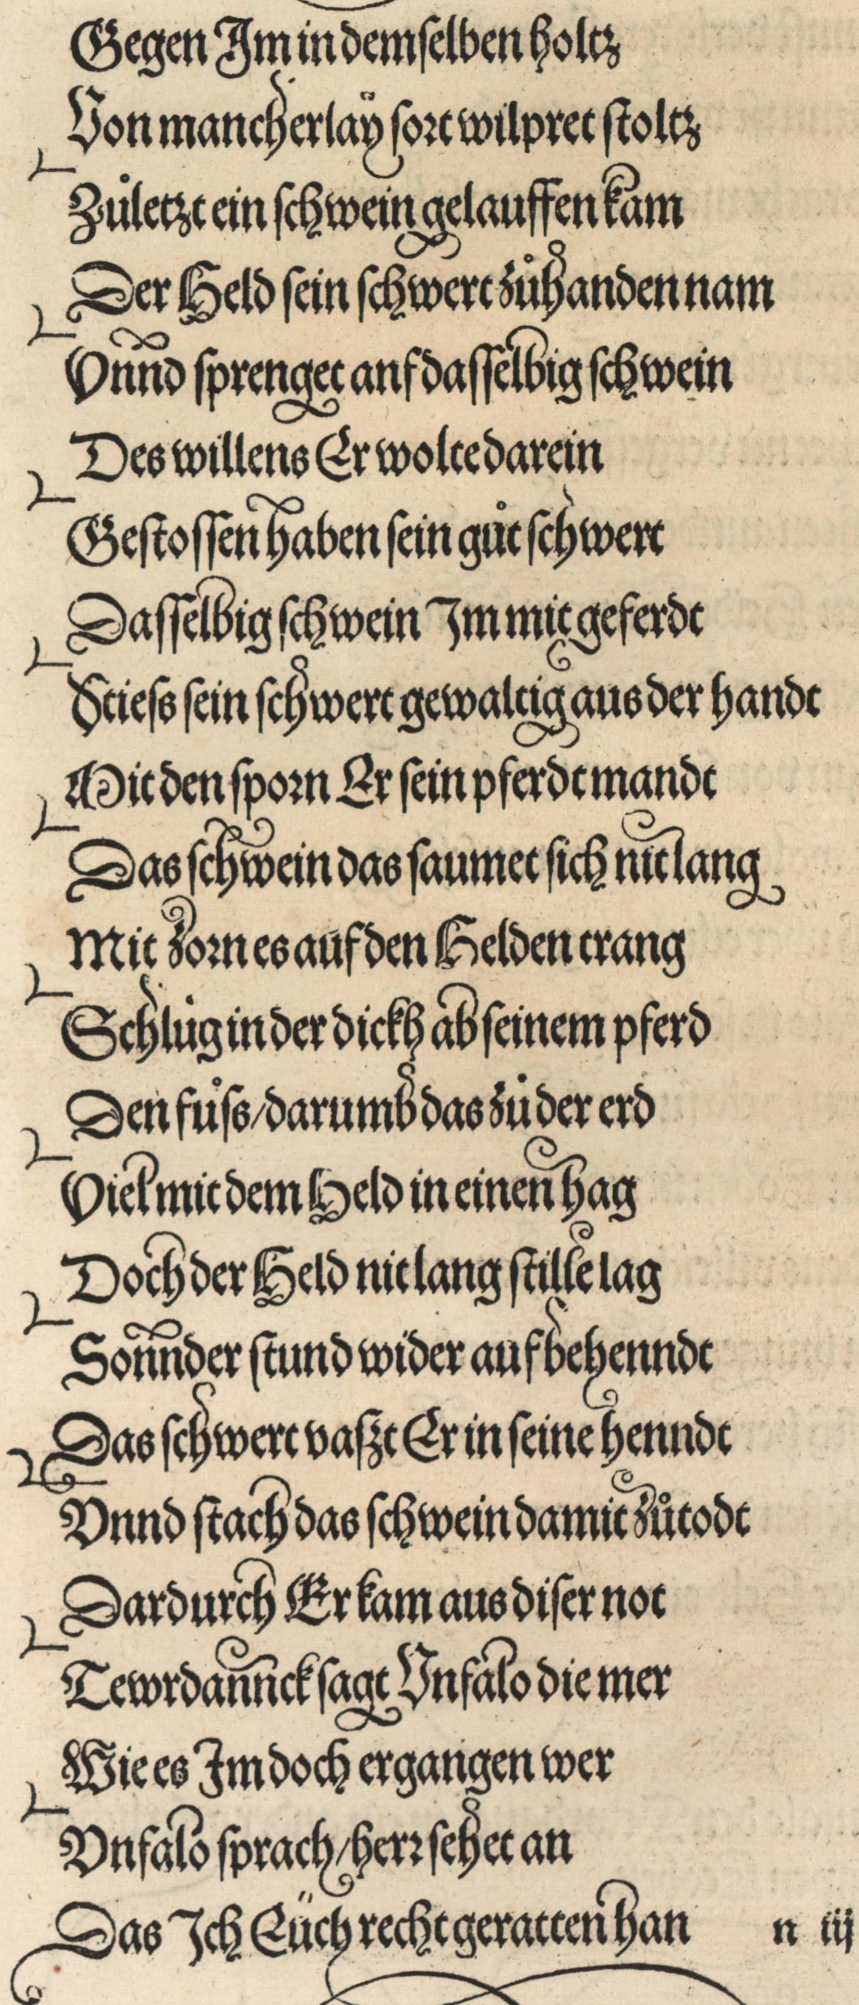 Gegen Im in demſelben holtz
Von mancherlaÿ ſort wilpret ſtoltz
Zůletzt ein ſchwein gelauffen kam
Der Held ſein ſchwert zůhanden nam
Vnnd ſprenget auf daſſelbig ſchwein
Des willens Er wolte darein
Geſtoſſen haben ſein gůt ſchwert
Daſſelbig ſchwein Im mit geferdt
Stieſs ſein ſchwert gewaltig aus der handt
Mit den ſporn Er ſein pferdt mandt
Das ſchwein das ſaumet ſich nit lang
Mit zorn es auf den Helden trang
Schlůg in der dickh ab ſeinem pferd
Den fůſs/darumb das zů der erd
Viel mit dem Held in einen hag
Doch der Held nit lang ſtille lag
Sonnder ſtund wider auf behenndt
Das ſchwert vaſzt Er in ſeine henndt
Vnnd ſtach das ſchwein damit zůtodt
Dardurch Er kam aus diſer not
Tewrdannck ſagt Vnfalo die mer
Wie es Im doch ergangen wer
Vnfalo ſprach/herr ſehet an
Das Ich Eüch recht geratten han n iij